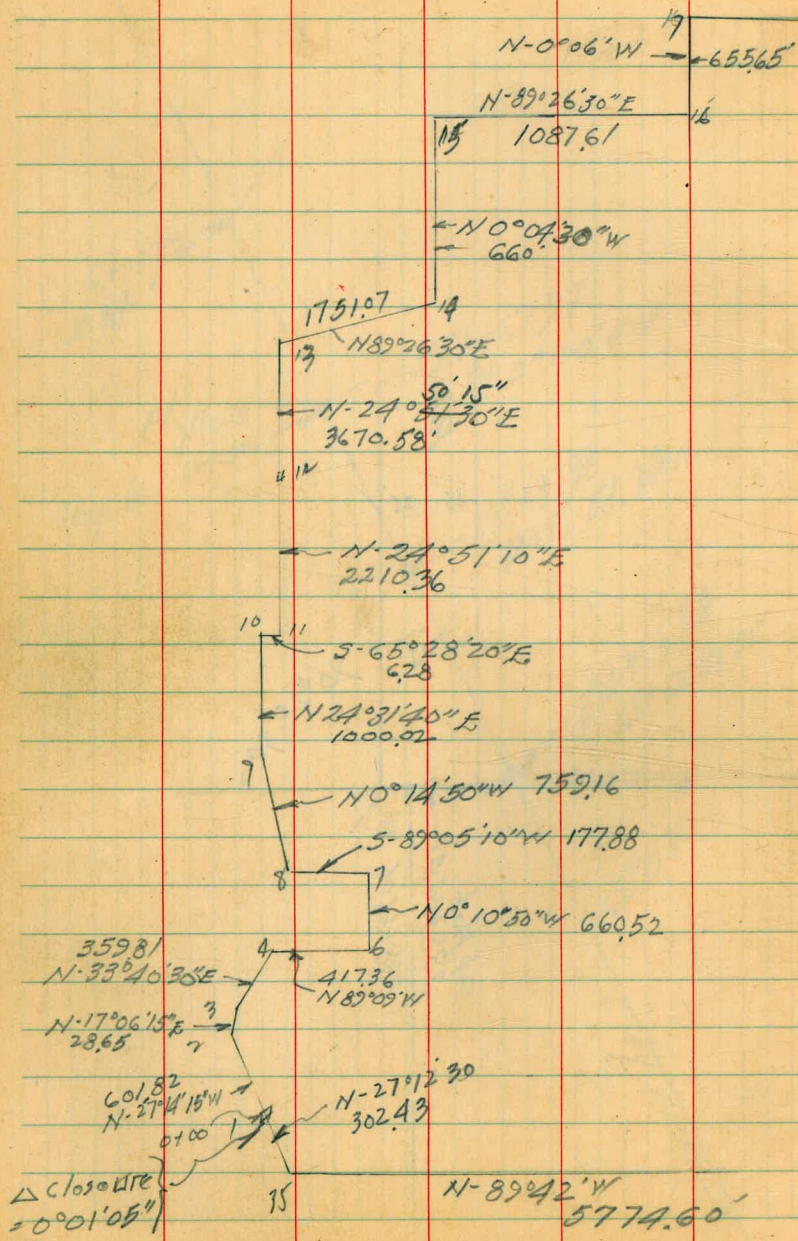 17
N-0°06'W
655.65'
N-89°26'30"E
16
15
1087.61
N 0°04'30"W
660.
1751.07
14
13
N89°26'30"E
50' 15"
N-24°51'30"E
3670.58'
12
N-24°51'10"E
2210.36
10 11
S-65°28'20"E
6.28
N24°31'40"E
1000.02
9
N0°14'50"W 759.16
S-89°05'10"W 177.88
8 7
N0°10'50"W 660.52
359.81
4 6
N-33°40'30"E
417.36
N89°09'W
N-17°06'15"E 3
28.65 2
601.82
N-27°14'15"W
N-27°12'30
302.43
0+00 1
△ Closoure
= 0°01'05"
35
N-89°42'W
5774.60'